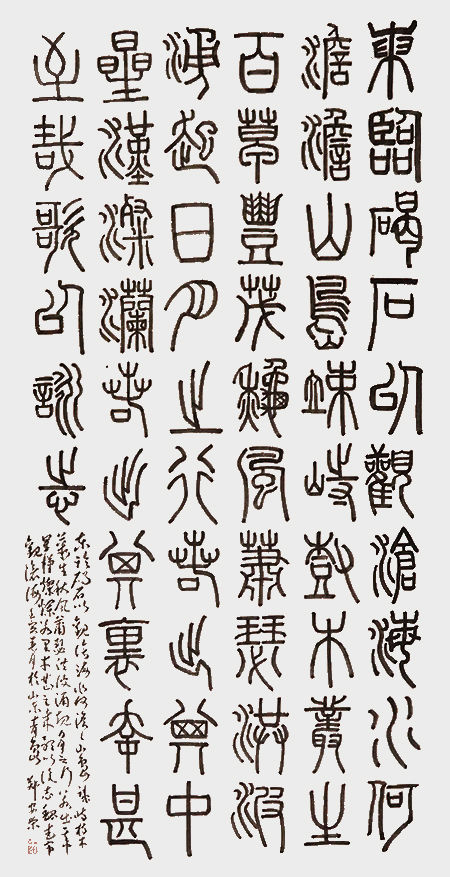 東臨碣石以觀滄海水何
澹澹山島竦峙樹木叢生
百草豐茂秋風蕭瑟洪波
涌起日月之行若出其中
星漢燦爛若出其裏幸甚
至哉歌以詠志
东临碣石以觀滄海水何澹澹山島竦峙樹木
叢生秋風蕭瑟洪波涌起日月之行若出其中
星漢燦爛若出其里幸甚至哉歌以詠志
觀滄海 於山东青島